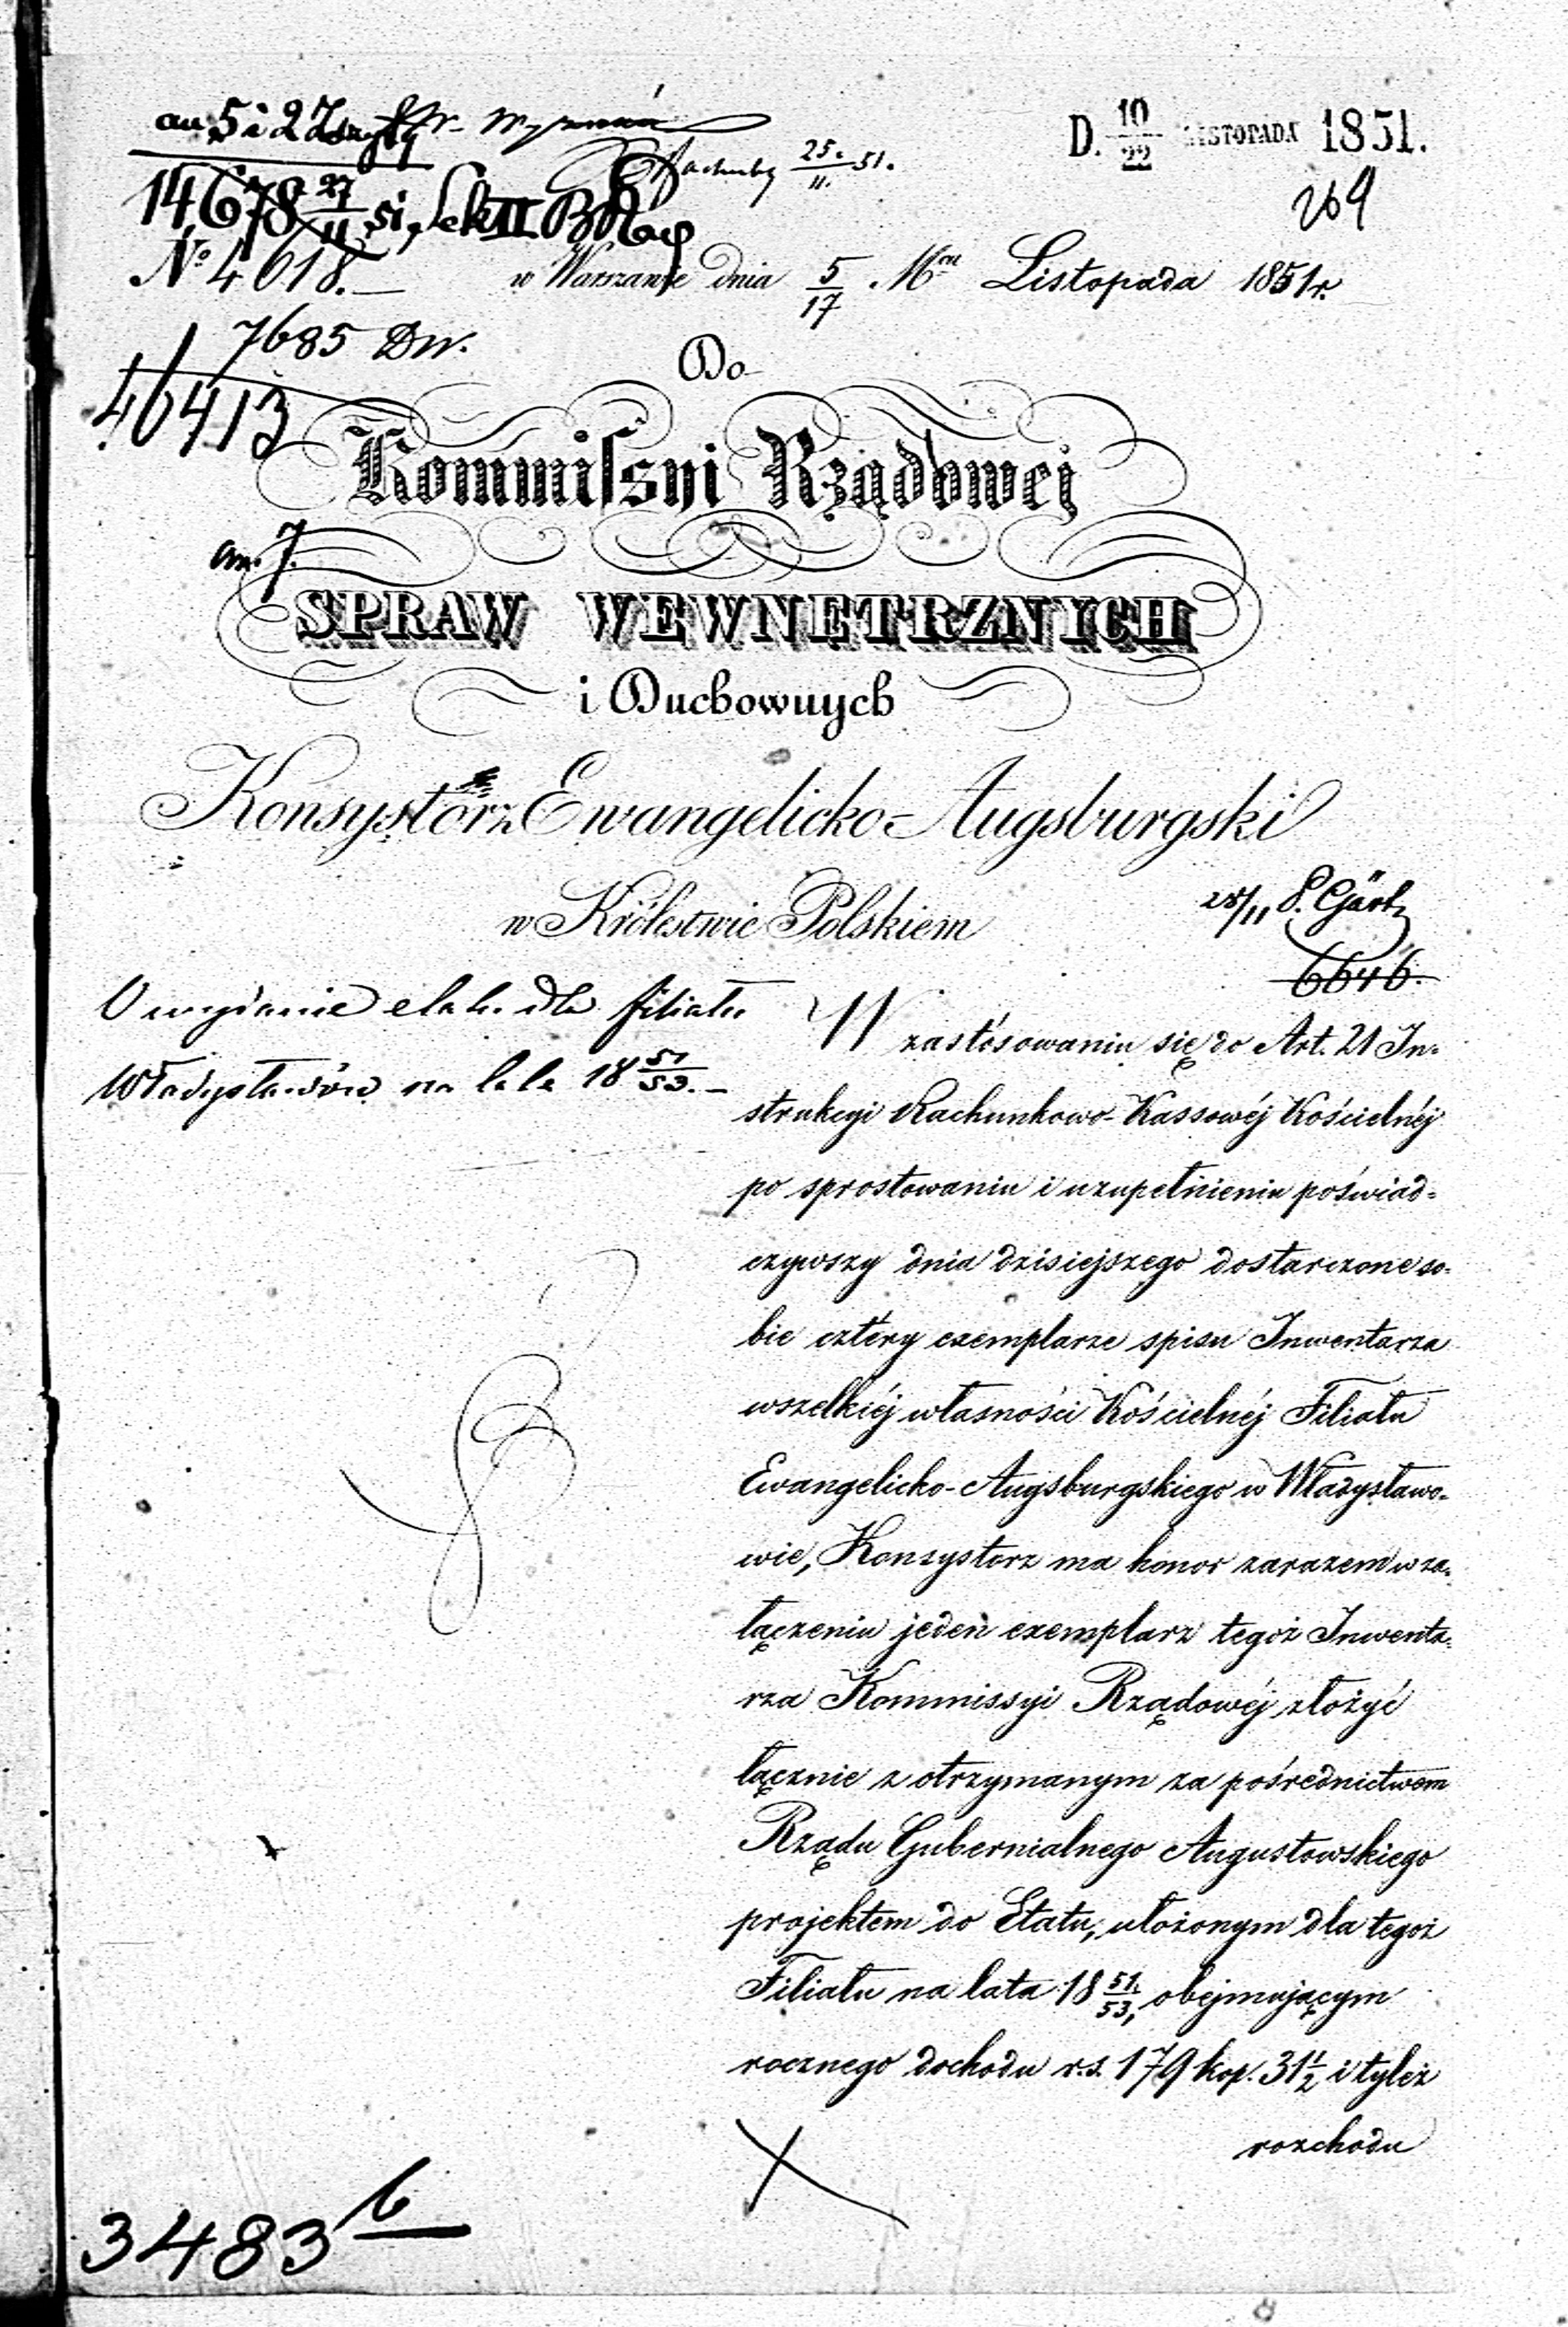 an 5 i 2 Zszyty
D. 10/22 LISTOPADA 1851.
25./11. 51.
269
14,678 27/11 51, Sek II
№ 4618.—
w Warszawie dnia 5/17 Mca Listopada 1851 r.
7685 DW.
46413
Do
Kommiſsyi Rządowej
an. 7.
SPRAW WEWNĘTRZNYCH
i Duchownych
Konsystorz Ewangelicko-Augsburgski
w Królestwie Polskiem
28/11 P. Gärtz
6646.
O wydanie etatu dla filiału
Władysławów na lata 18 51/53.—
W zastósowaniu się do Art. 21 In-
strukcyi Rachunkowo-Kassowéj Kościelnéj
po sprostowaniu i uzupełnieniu poświad-
czywszy dnia dzisiejszego dostarczone so-
bie cztéry exemplarze spisu Inwentarza
wszelkiéj własności Kościelnéj Filiału
Ewangelicko-Augsburgskiego w Władysławo-
wie, Konsystorz ma honor zarazem w za-
łączeniu jeden exemplarz tegoż Inwenta-
rza Kommissyi Rządowéj złożyć
łącznie z otrzymanym za pośrednictwem
Rządu Gubernialnego Augustowskiego
projektem do Etatu, ułożonym dla tegoż
Filiału na lata 18 51/53, obejmującym
rocznego dochodu r.s. 179 kop. 31½ i tyleż
rozchodu
3483 6